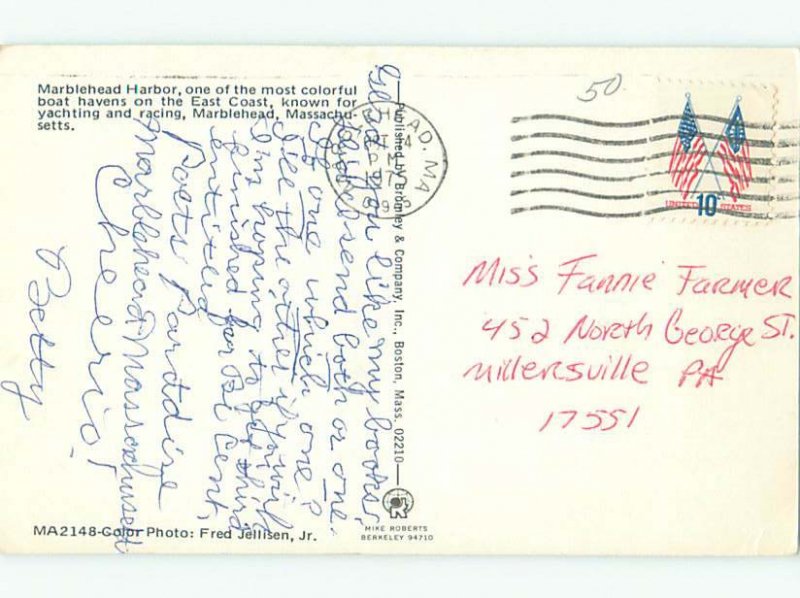 Marblehead Harbor, one of the most colorful
boat havens on the East Coast, known for
yachting and racing, Marblehead, Massachu-
setts.
Glad you like my books.
Did I send both or one.
If one which one?
I'll see the other if you wish
I'm hoping to get third
finished for Bi Cent,
entitled
Poets Paradise
Marblehead Massachusetts
Cheerio!
Betty
Published by Bromley & Company, Inc., Boston, Mass. 02210
HEAD, MA
PM
1975
50
UNITED STATES
10c
Miss Fannie Farmer
452 North George St.
Millersville PA
17551
MA2148-Color Photo: Fred Jellisen, Jr.
MIKE ROBERTS
BERKELEY 94710